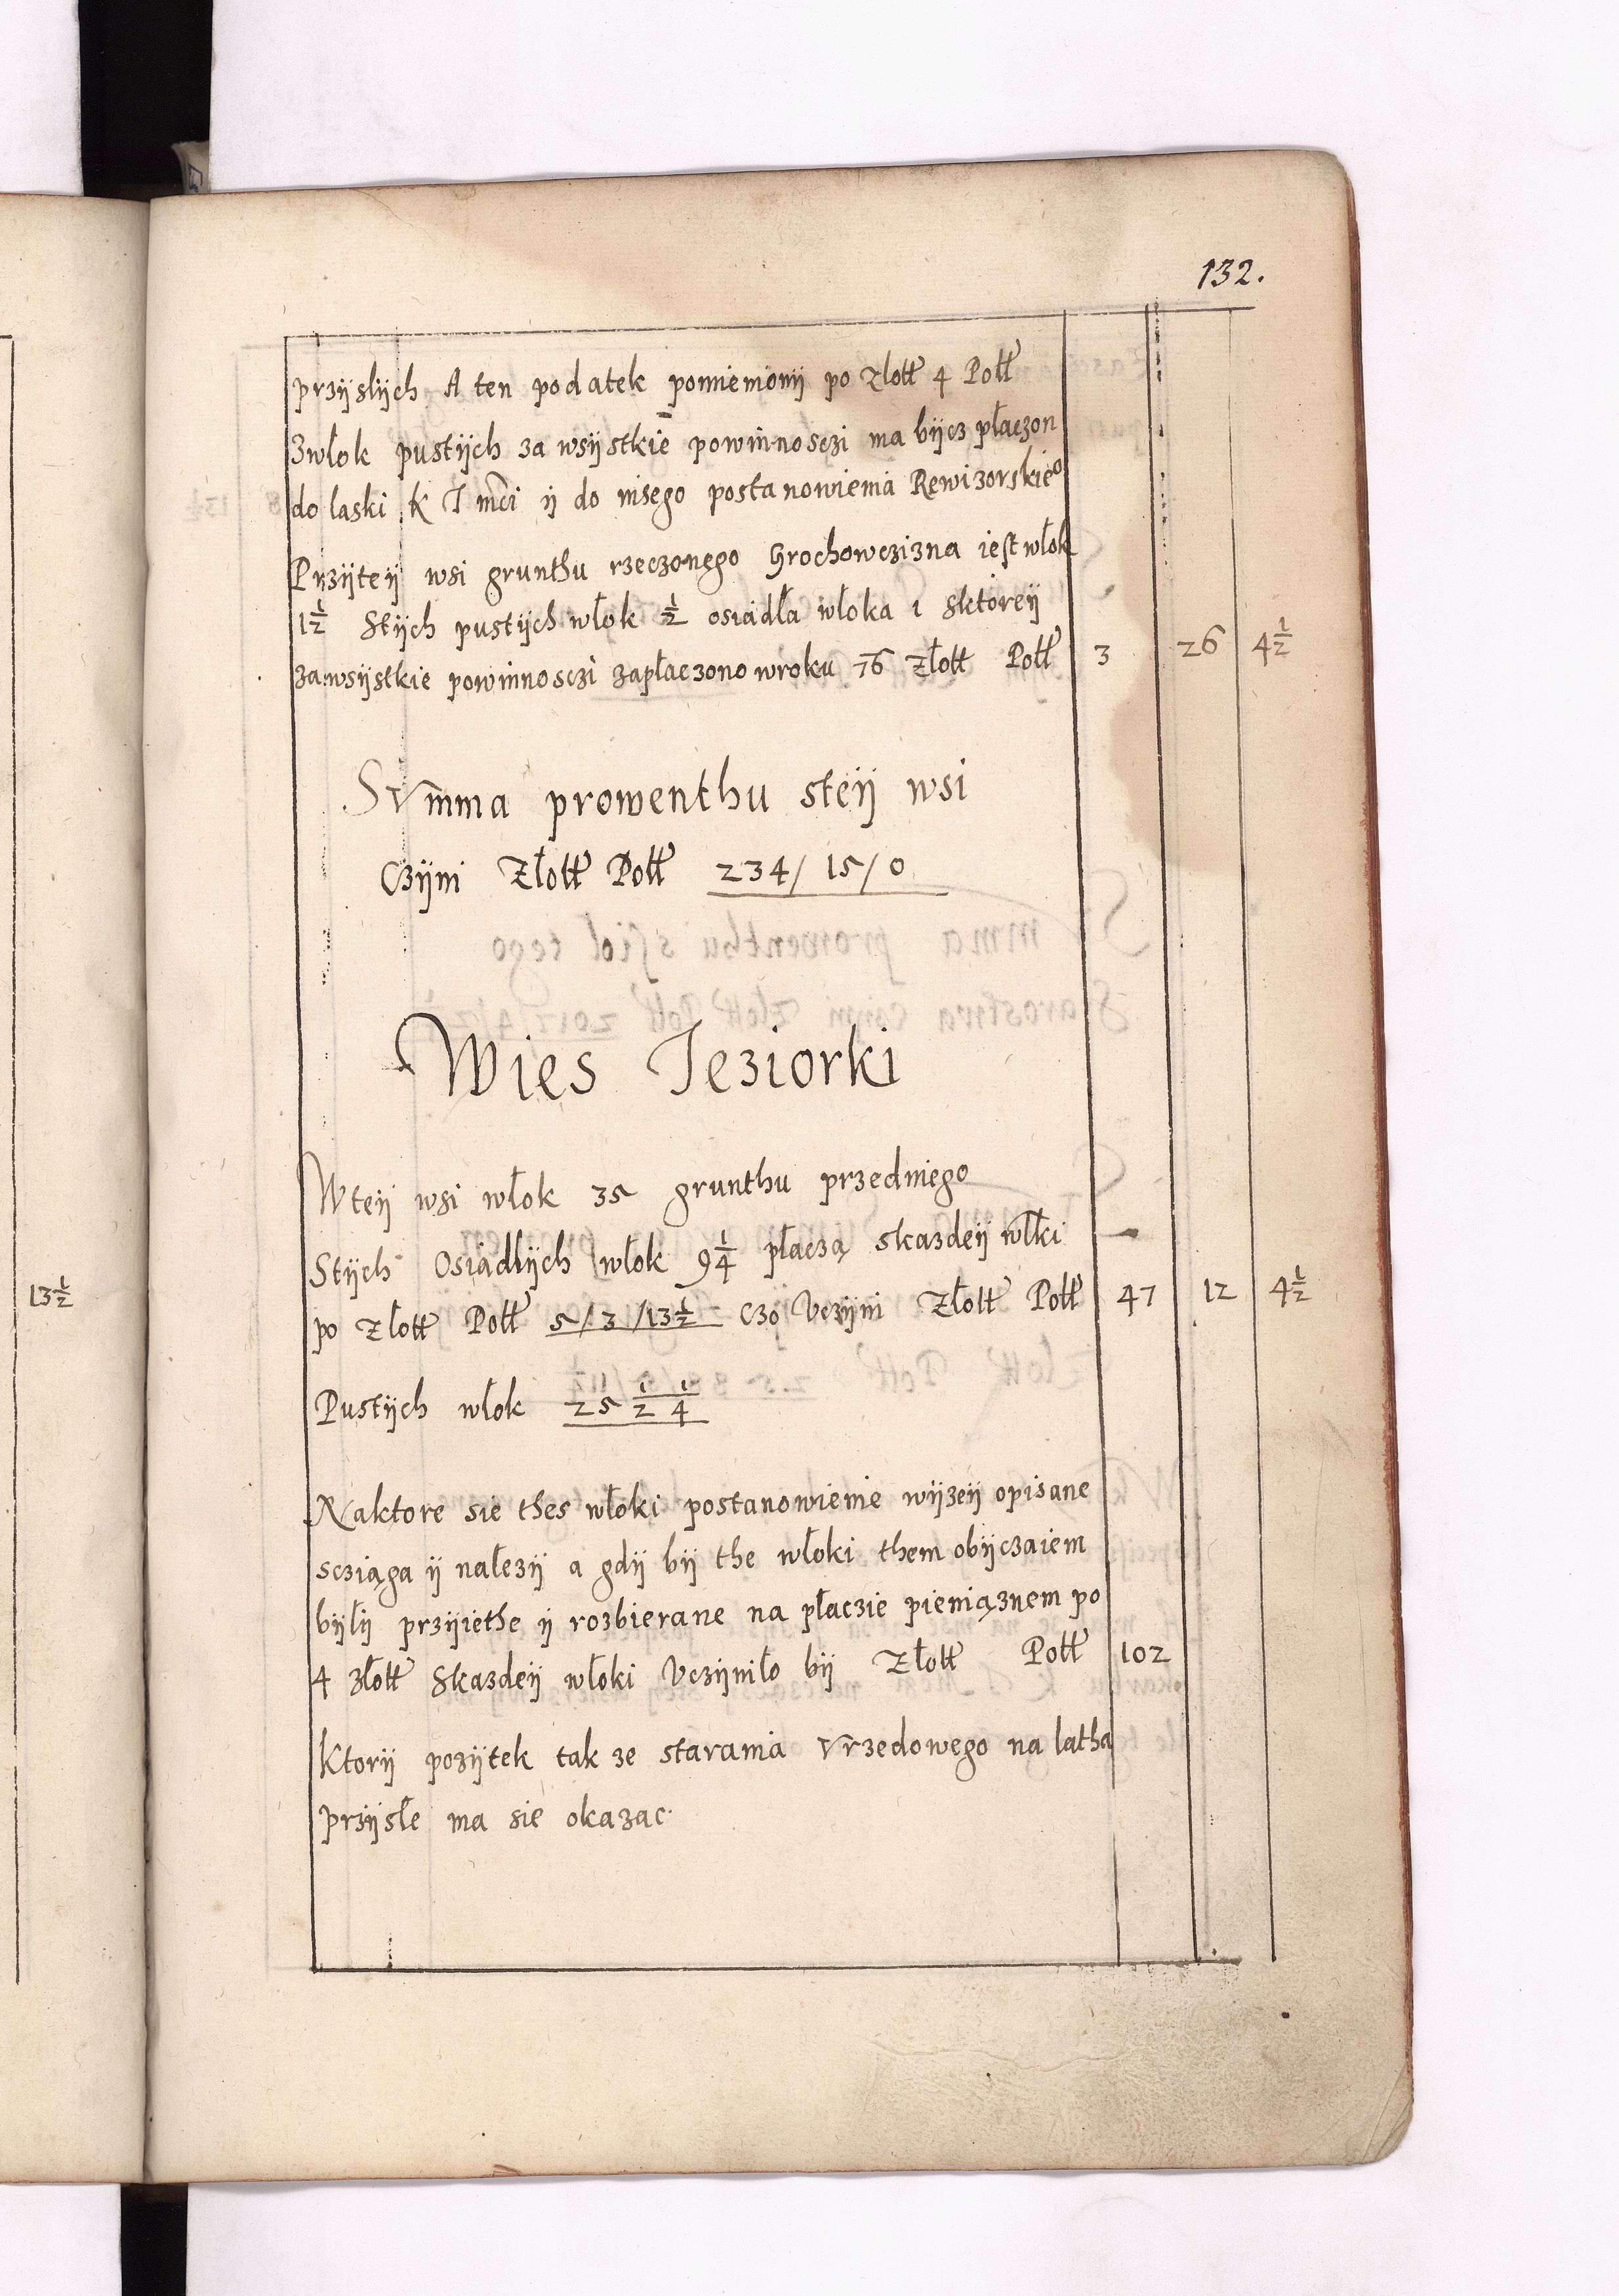 132.
przÿslÿch A ten podatek pomienionÿ po złott 4 Połł
Zwłok pustÿch za wsÿstkie powinnosczi ma bÿcz płaczon
do laski K J mci ÿ do inssego postanowienia Rewizorskieo
Przÿteÿ wsi grunthu rzeczonego Grochowczizna iest włok
1½ Stÿch pustÿch włok ½ osiadła włoka 1 sktoreÿ
zawsÿstkie powinnosczi zapłaczono wroku 76 Złott Połł 3 26 4½
Summa prowenthu steÿ wsi
Czÿni Złott Połł 234/ 15/ 0
Wies Jeziorki
Wteÿ wsi włok 35 grunthu przedniego
Stÿch Osiadłÿch włok 9¼ płaczą skazdeÿ włki
13½
po złott Połł 5/ 3 /13½ czo Vczÿni Złott Połł 47 12 4½
Pustÿch włok 25 ½ ¼
Naktore sie thes włoki postanowienie wÿzeÿ opisane
scziąga ÿ nalezÿ a gdÿ bÿ the włoki them obÿczaiem
bÿłÿ przÿiethe ÿ rozbierane na płaczie pieniąznem po
4 złott Skazdeÿ włoki Vczÿniło bÿ Złott Połł 102
Ktorÿ pozÿtek tak ze starania Vrzedowego na latha
przÿsłe ma sie okazac